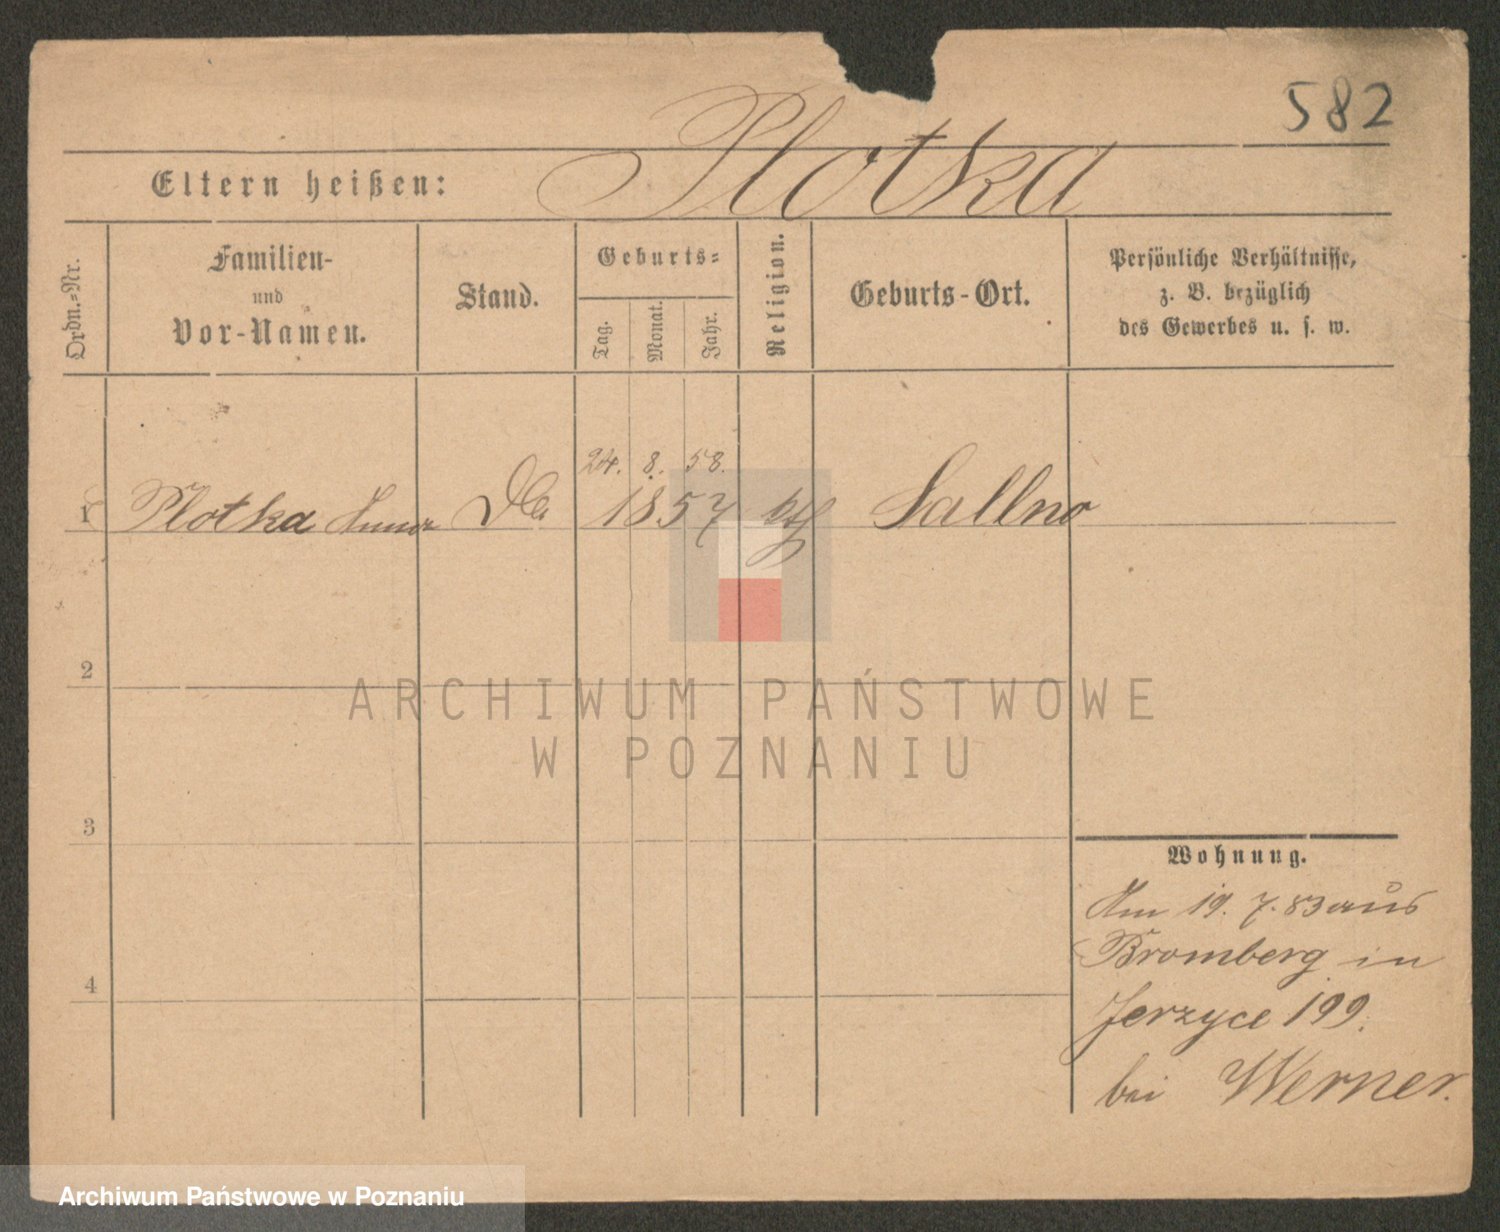 582
Plotka
Eltern heißen:
Ordn.-Nr.
Familien-
und
Vor-Namen.
Stand.
Geburts-
Tag.
Monat.
Jahr.
Religion.
Geburts-Ort.
Persönliche Verhältnisse,
z. B. bezüglich
des Gewerbes u. s. w.
24. 8. 58.
1 Plotka Anna 1857 kth Sallno
2
ARCHIWUM PAŃSTWOWE
W POZNANIU
3
Wohnung.
Am 19. 7. 83 aus
Bromberg in
4
Jerzyce 199.
bei Werner.
Archiwum Państwowe w Poznaniu